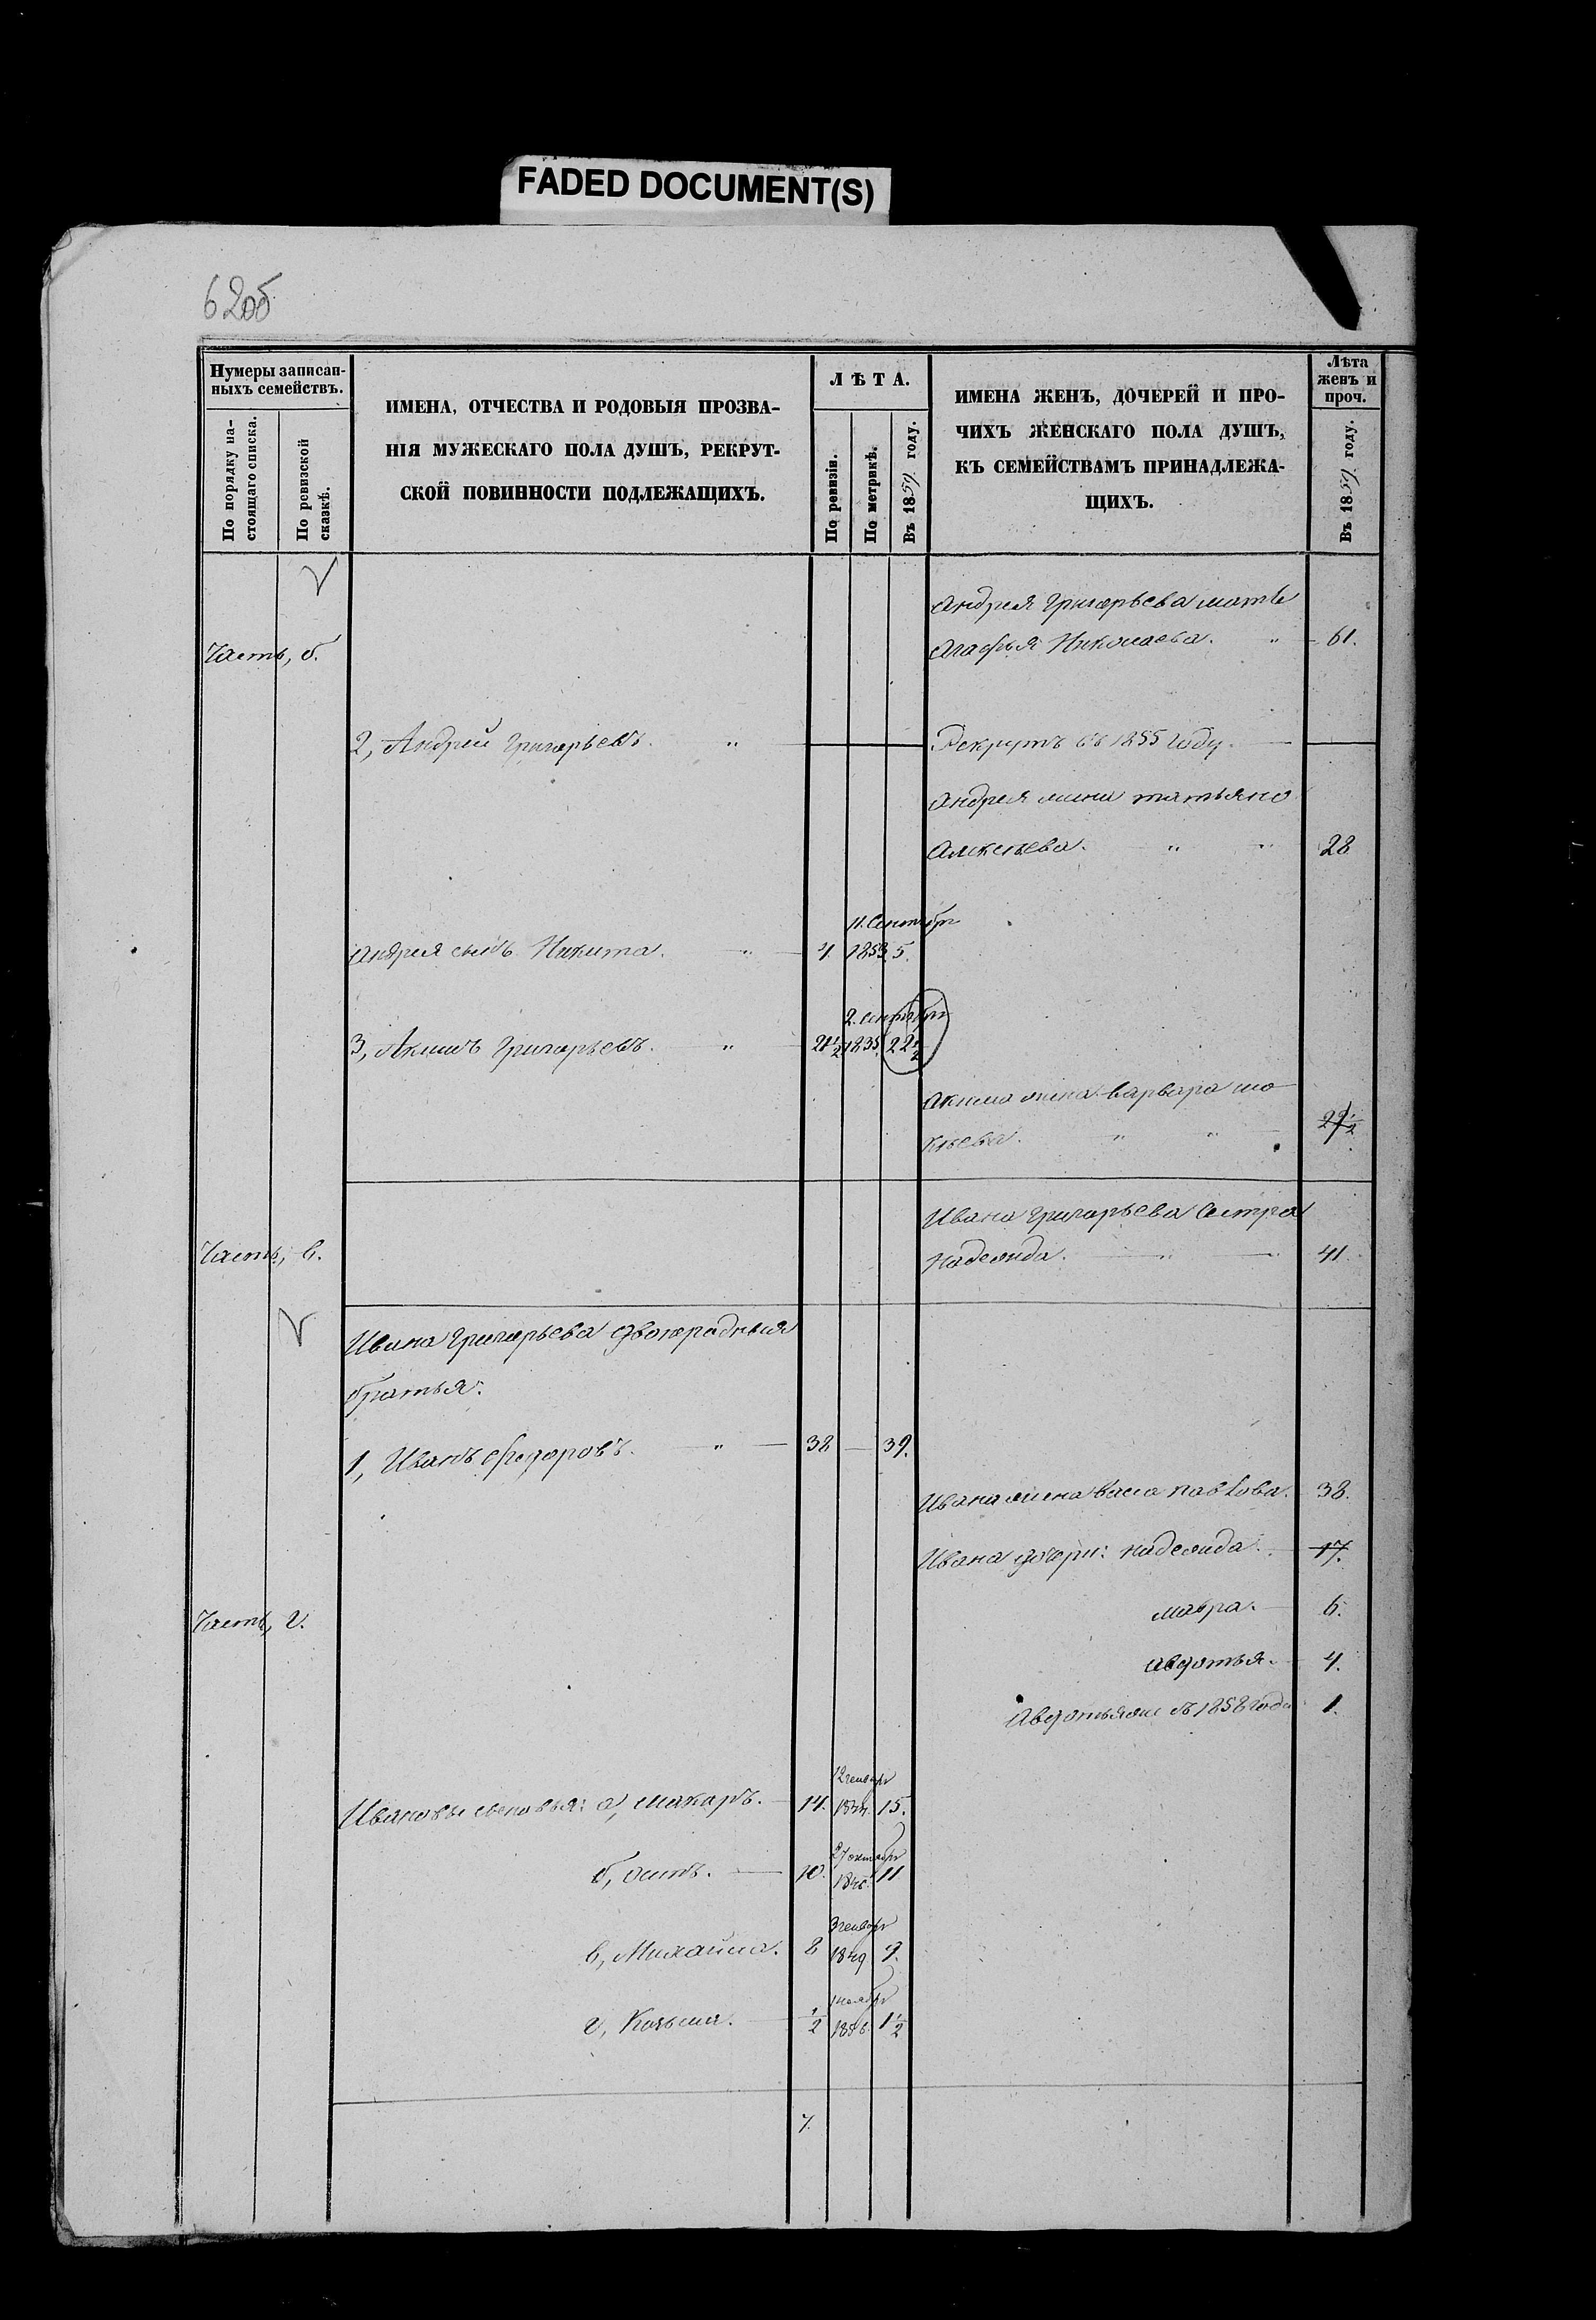 FADED DOCUMENT(S)
62об
Нумеры записан-
ныхъ семействъ.
По порядку на-
стоящаго списка.
По ревизской
сказкѣ.
ИМЕНА, ОТЧЕСТВА И РОДОВЫЯ ПРОЗВА-
НІЯ МУЖЕСКАГО ПОЛА ДУШЪ, РЕКРУТ-
СКОЙ ПОВИННОСТИ ПОДЛЕЖАЩИХЪ.
ЛѢТА.
По ревизіи.
По метрикѣ.
Въ 1859 году.
ИМЕНА ЖЕНЪ, ДОЧЕРЕЙ И ПРО-
ЧИХЪ ЖЕНСКАГО ПОЛА ДУШЪ,
КЪ СЕМЕЙСТВАМЪ ПРИНАДЛЕЖА-
ЩИХЪ.
Лѣта
женъ и
проч.
Въ 1859 году.
Андрея Григорьева мать
Часть, б. Агафья Николаева. " 61.
2, Андрей Григорьевъ. " Рекрутъ въ 1855 году.
Андрея жена татьяна
Алексѣева. " " 28
11. Сентябр
Андрея сынъ Никита. " 4 1853 5.
2. сентябр
3, Акимъ Григорьевъ. " 21½ 1835 22½
Акима жена варвара мо
кѣева. " " 22½
Ивана Григорьева Сестра
Часть, в. Надежда. " 41
Ивана Григорьева двоюродныя
братья:
1, Иванъ Федоровъ. " 38 — 39.
Ивана жена васа павлова. 38.
Ивана дочери: надежда. 17.
Часть, г. мавра. 6.
авдотья. 4.
Авдотья же съ 1858 года 1.
12 генвар
Ивановы сыновья: а, макаръ. 14. 1844. 15.
27 октябр
б, осипъ. 10. 1846. 11
3 генвар
в, Михайла. 8 1849 9.
1 ноябр
г, Козьма. ½ 1856. 1½
7.